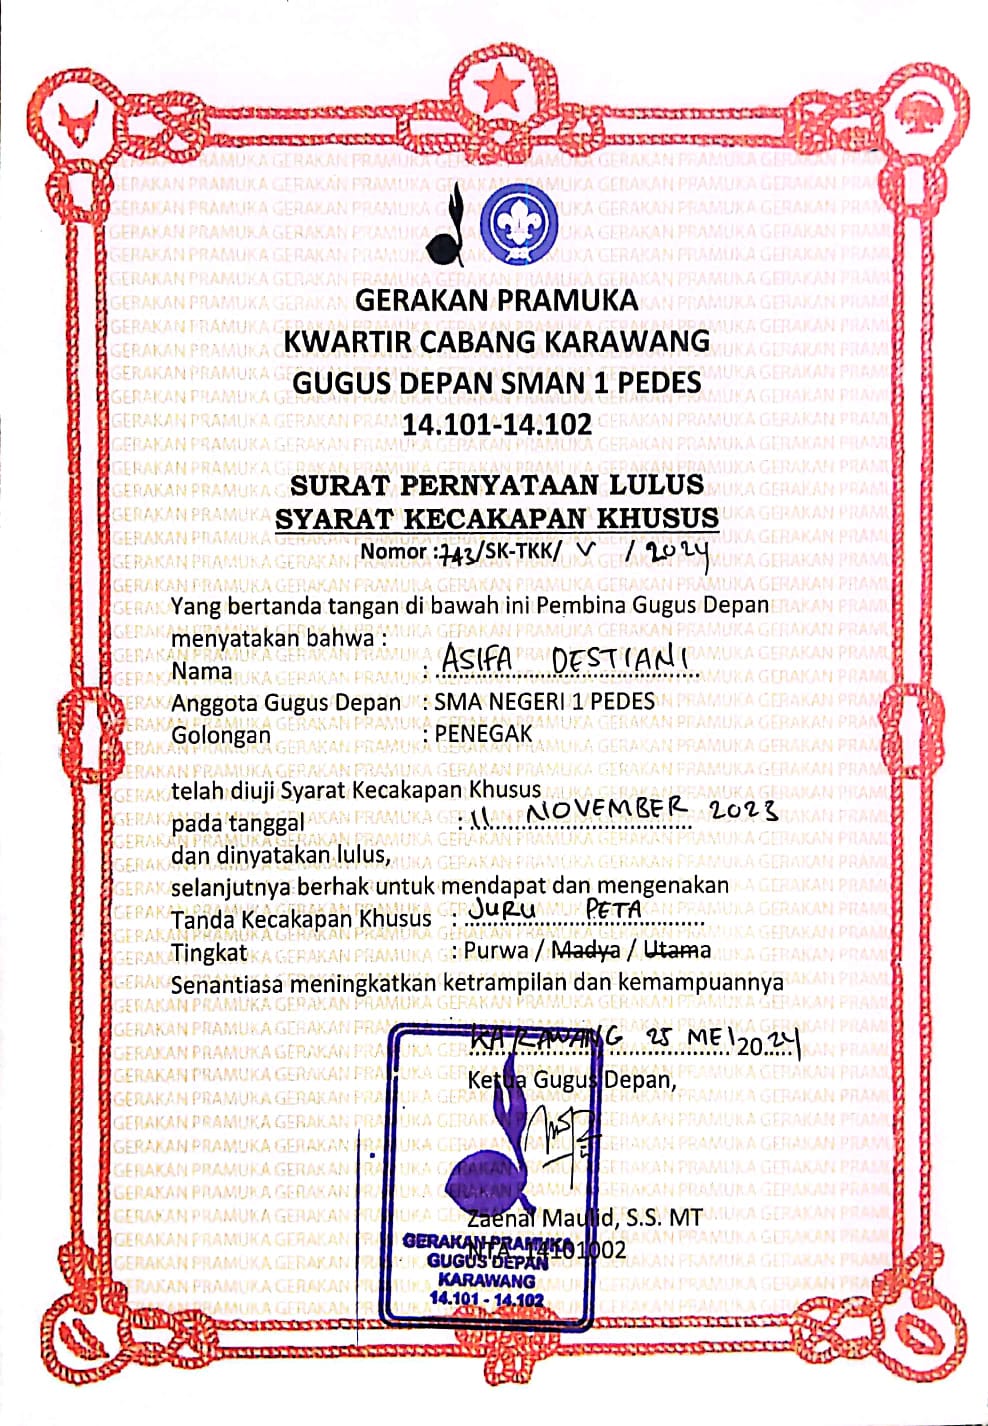 GERAKAN PRAMUKA
KWARTIR CABANG KARAWANG
GUGUS DEPAN SMAN 1 PEDES
14.101-14.102
SURAT PERNYATAAN LULUS
SYARAT KECAKAPAN KHUSUS
Nomor : 743/SK-TKK/ V / 2024
Yang bertanda tangan di bawah ini Pembina Gugus Depan
menyatakan bahwa :
Nama : ASIFA DESTIANI
Anggota Gugus Depan : SMA NEGERI 1 PEDES
Golongan : PENEGAK
telah diuji Syarat Kecakapan Khusus
pada tanggal : 11 NOVEMBER 2023
dan dinyatakan lulus,
selanjutnya berhak untuk mendapat dan mengenakan
Tanda Kecakapan Khusus : JURU PETA
Tingkat : Purwa / Madya / Utama
Senantiasa meningkatkan ketrampilan dan kemampuannya
KARAWANG 25 MEI 2024
Ketua Gugus Depan,
Zaenal Maulid, S.S. MT
NTA 14101002
GERAKAN PRAMUKA
GUGUS DEPAN
KARAWANG
14.101 - 14.102